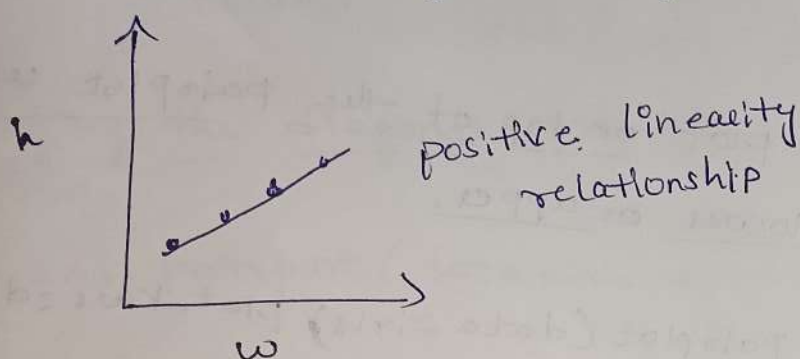 h
positive linearity
relationship
w